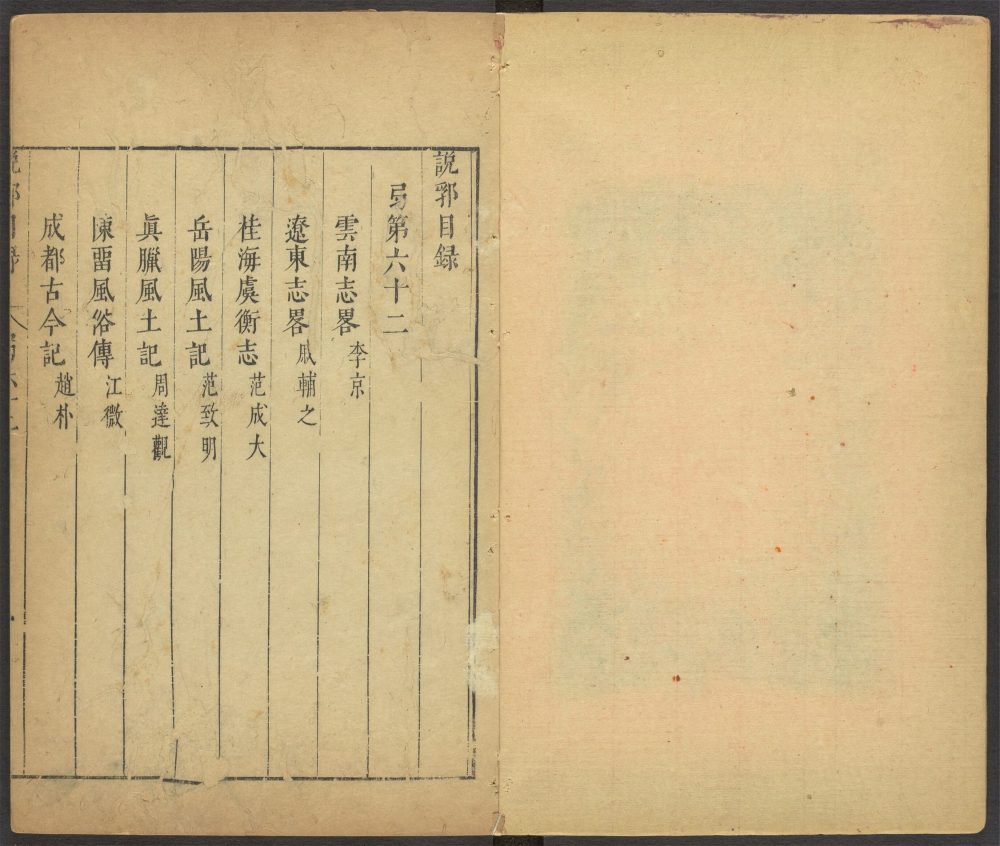 説郛目録
弓第六十二
雲南志畧 李京
遼東志畧 戚輔之
桂海虞衡志 范成大
岳陽風土記 范致明
眞臘風土記 周達觀
陳畱風俗傳 江微
成都古今記 趙朴